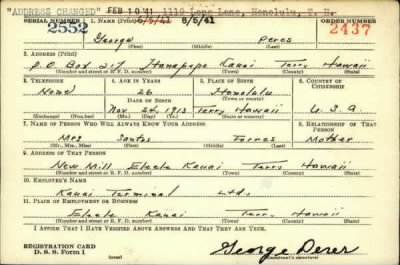 "ADDRESS CHANGED" FEB 10 '41 1118 Lane, Honolulu, T. H.
SERIAL NUMBER 1. NAME (Print) 8/5/41 8/5/41 ORDER NUMBER
2552 George Peres 2437
(First) (Middle) (Last)
2. ADDRESS (Print)
P.O. Box 217 Hanapepe Kauai Terr. Hawaii
(Number and street or R. F. D. number) (Town) (County) (State)
3. TELEPHONE 4. AGE IN YEARS 5. PLACE OF BIRTH 6. COUNTRY OF CITIZENSHIP
None 26 Honolulu
DATE OF BIRTH (Town or county)
Nov 24, 1913 Terr. Hawaii U.S.A.
(Exchange) (Number) (Mo.) (Day) (Yr.) (State or country)
7. NAME OF PERSON WHO WILL ALWAYS KNOW YOUR ADDRESS 8. RELATIONSHIP OF THAT PERSON
Mrs Santos Torres Mother
(Mr., Mrs., Miss) (First) (Middle) (Last)
9. ADDRESS OF THAT PERSON
New Mill Eleele Kauai Terr. Hawaii
(Number and street or R. F. D. number) (Town) (County) (State)
10. EMPLOYER'S NAME
Kauai Terminal Ltd.
11. PLACE OF EMPLOYMENT OR BUSINESS
Eleele Kauai Terr. Hawaii
(Number and street or R. F. D. number) (Town) (County) (State)
I AFFIRM THAT I HAVE VERIFIED ABOVE ANSWERS AND THAT THEY ARE TRUE.
REGISTRATION CARD
D. S. S. Form 1 George Peres
(Registrant's signature)